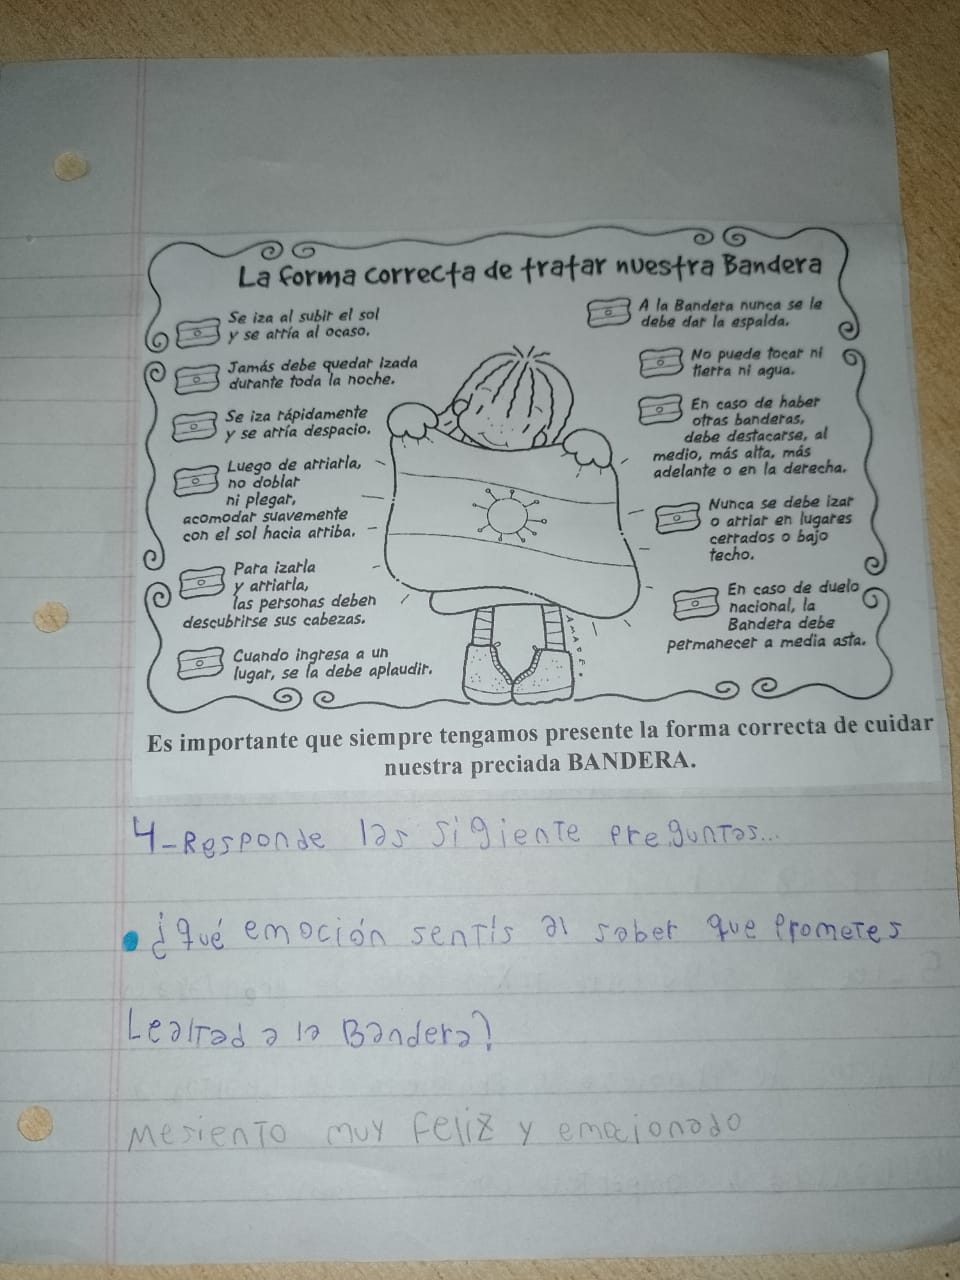 La forma correcta de tratar nuestra Bandera
Se iza al subir el sol
y se arría al ocaso.
Jamás debe quedar izada
durante toda la noche.
Se iza rápidamente
y se arría despacio.
Luego de arriarla,
no doblar
ni plegar,
acomodar suavemente
con el sol hacia arriba.
Para izarla
y arriarla,
las personas deben
descubrirse sus cabezas.
Cuando ingresa a un
lugar, se la debe aplaudir.
A la Bandera nunca se le
debe dar la espalda.
No puede tocar ni
tierra ni agua.
En caso de haber
otras banderas,
debe destacarse, al
medio, más alta, más
adelante o en la derecha.
Nunca se debe izar
o arriar en lugares
cerrados o bajo
techo.
En caso de duelo
nacional, la
Bandera debe
permanecer a media asta.
Es importante que siempre tengamos presente la forma correcta de cuidar
nuestra preciada BANDERA.
4-Responde las sigiente preguntas...
¿Qué emoción sentís al saber que Prometes
Lealtad a la Bandera?
Mesiento muy Feliz y emocionado